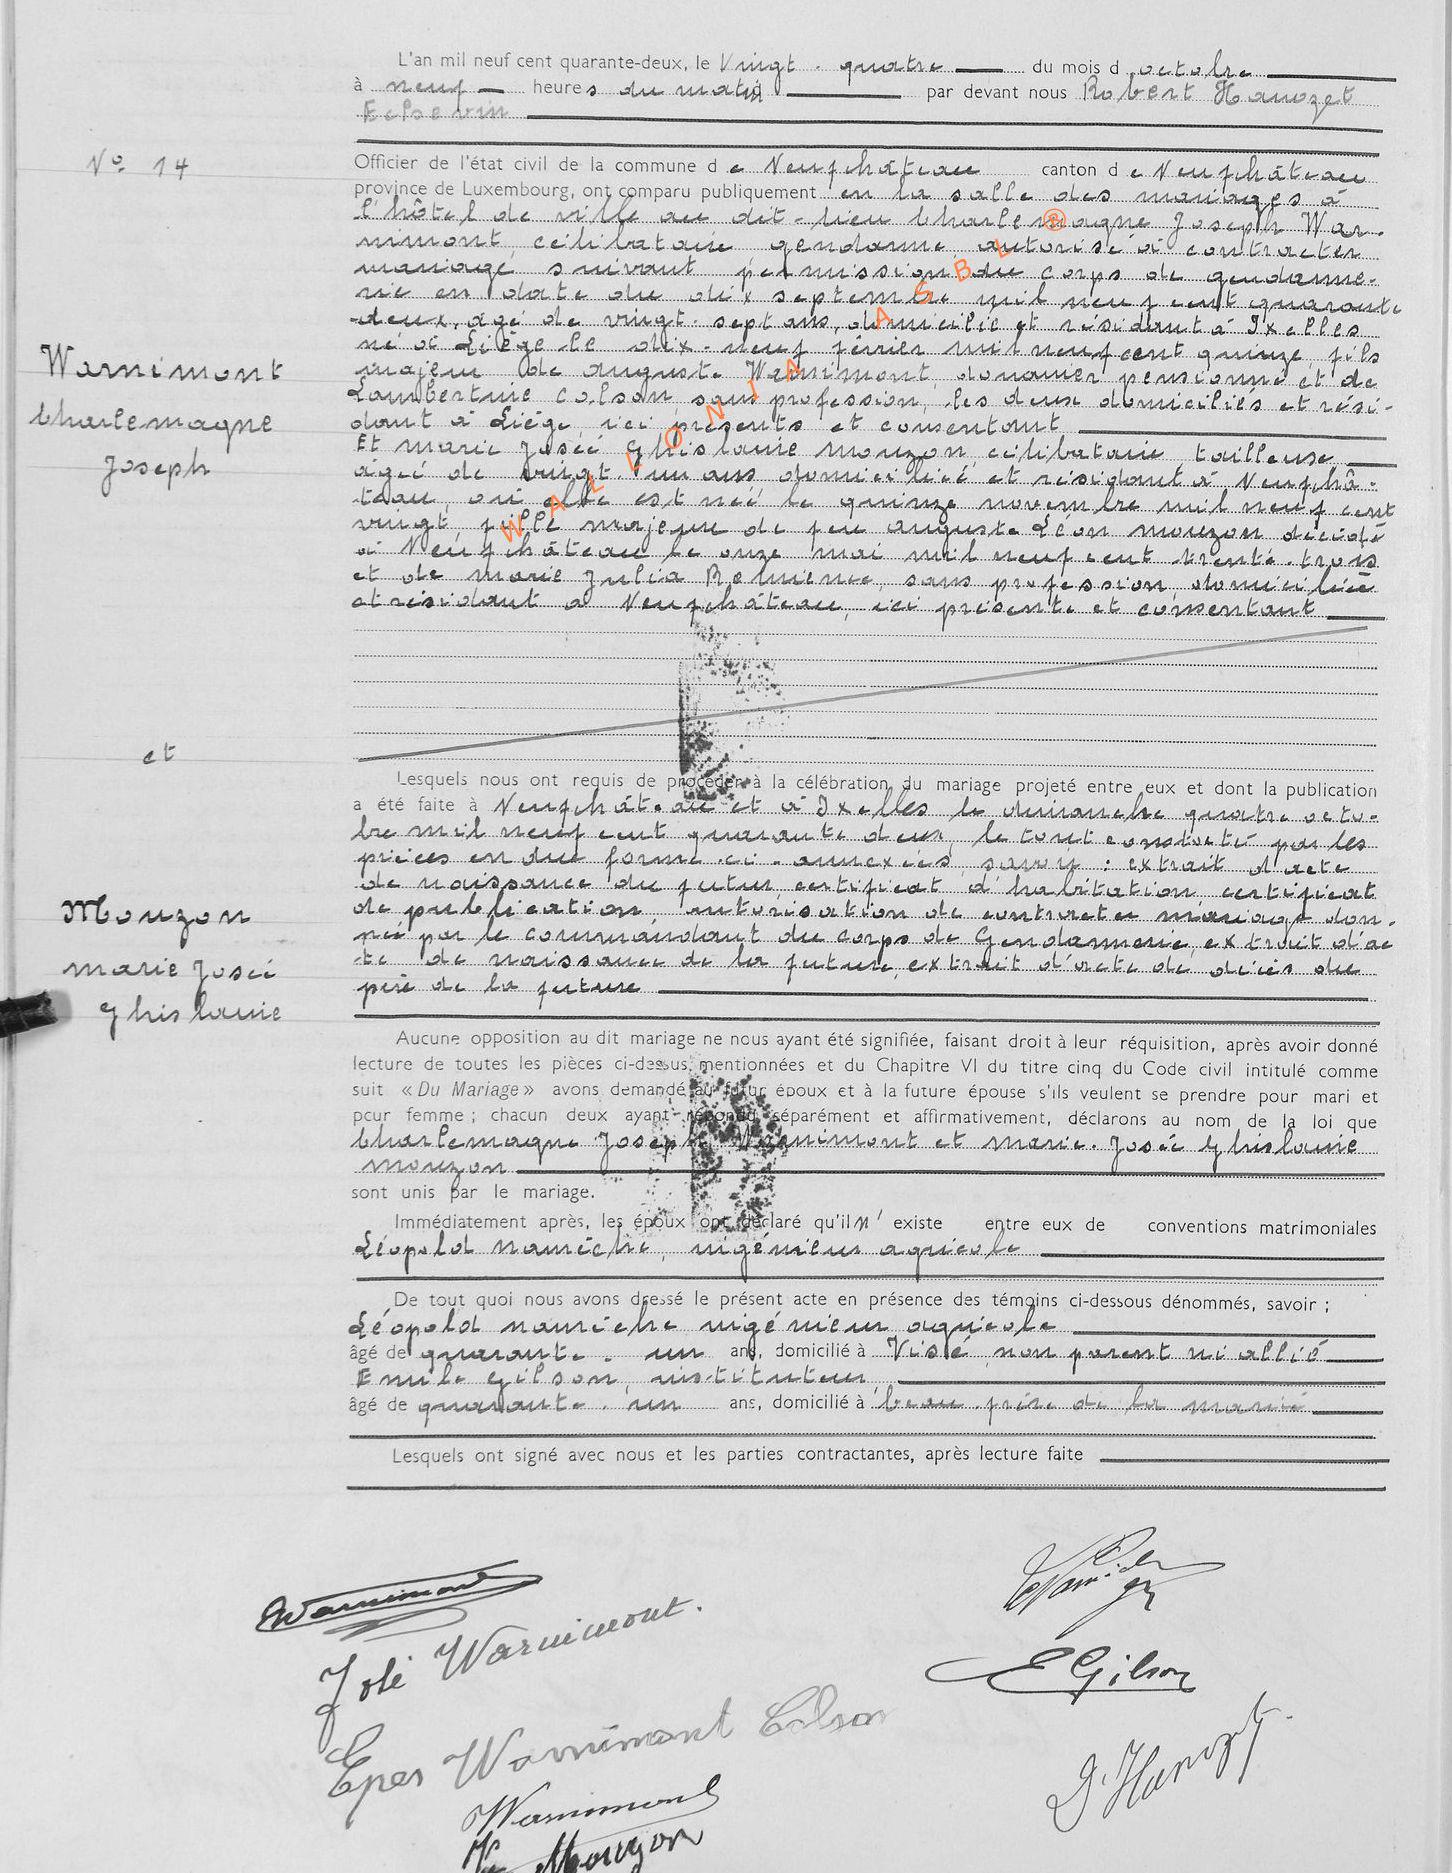 L'an mil neuf cent quarante-deux, le Vingt-quatre du mois d octobre
à neuf heures du matin par devant nous Robert Hanozet
Echevin
N° 14
Officier de l'état civil de la commune de Neufchâteau canton de Neufchâteau
province de Luxembourg, ont comparu publiquement en la salle des mariages à
l'hôtel de ville au dit-lieu Charlemagne Joseph War-
nimont, célibataire gendarme, autorisé à contracter
mariage suivant permission du corps de gendarme-
rie en date du dix septembre mil neuf cent quarante
deux, âgé de vingt-sept ans, domicilié et résidant à Ixelles
né à Liège le dix-neuf février mil neuf cent quinze, fils
majeur de Auguste Warnimont, douanier pensionné et de
Lambertine Colson, sans profession, les deux domiciliés et rési-
dant à Liège, ici présents et consentant
Et Marie Josée Ghislaine Mouzon, célibataire tailleuse
âgée de vingt-un ans domiciliée et résidant à Neufchâ-
teau, où elle est née le quinze novembre mil neuf cent
vingt, fille majeure de feu Auguste Léon Mouzon décédé
à Neufchâteau le onze mai mil neuf cent trente-trois
et de Marie Julia sans profession, domiciliée
et résidant à Neufchâteau, ici présente et consentant
Warnimont
Charlemagne
Joseph
et
Mouzon
Marie Josée
Ghislaine
WALLONIA ASBL ®
Lesquels nous ont requis de procéder à la célébration du mariage projeté entre eux et dont la publication
a été faite à Neufchâteau et à Ixelles le dimanche quatre octo-
bre mil neuf cent quarante deux, le tout constaté par les
pièces en due forme ci-annexées, savoir : extrait d'acte
de naissance du futur, certificat d'habitation, certificat
de publication, autorisation de contracter mariage don-
née par le commandant du corps de Gendarmerie, extrait d'ac
te de naissance de la future, extrait d'acte de décès du
père de la future
Aucune opposition au dit mariage ne nous ayant été signifiée, faisant droit à leur réquisition, après avoir donné
lecture de toutes les pièces ci-dessus mentionnées et du Chapitre VI du titre cinq du Code civil intitulé comme
suit « Du Mariage » avons demandé au futur époux et à la future épouse s'ils veulent se prendre pour mari et
pour femme ; chacun deux ayant répondu séparément et affirmativement, déclarons au nom de la loi que
Charlemagne Joseph Warnimont et Marie-Josée Ghislaine
Mouzon
sont unis par le mariage.
Immédiatement après, les époux ont déclaré qu'il n' existe entre eux de conventions matrimoniales
Léopold Namêche, ingénieur agricole
De tout quoi nous avons dressé le présent acte en présence des témoins ci-dessous dénommés, savoir ;
Léopold Namêche ingénieur agricole
âgé de quarante-un ans, domicilié à Visé, non parent ni allié
Emile Gilson, instituteur,
âgé de quarante-un ans, domicilié à beau-frère de la mariée
Lesquels ont signé avec nous et les parties contractantes, après lecture faite
Warnimont
José Warnimont.
Epes Warnimont Colson
EGilson
Warnimont
Mouzon